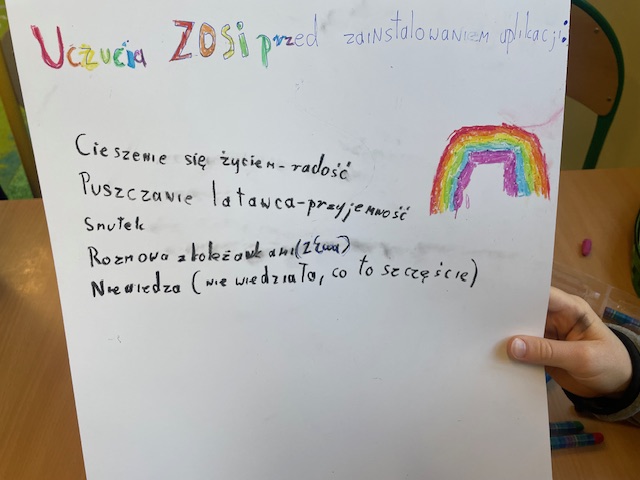 Uczucia ZOSi przed zainstalowaniem aplikacji:
Cieszenie się życiem-radość
Puszczanie latawca-przyjemność
Smutek
Rozmowa z koleżankami (zła)
Niewiedza (nie wiedziała, co to szczęście)